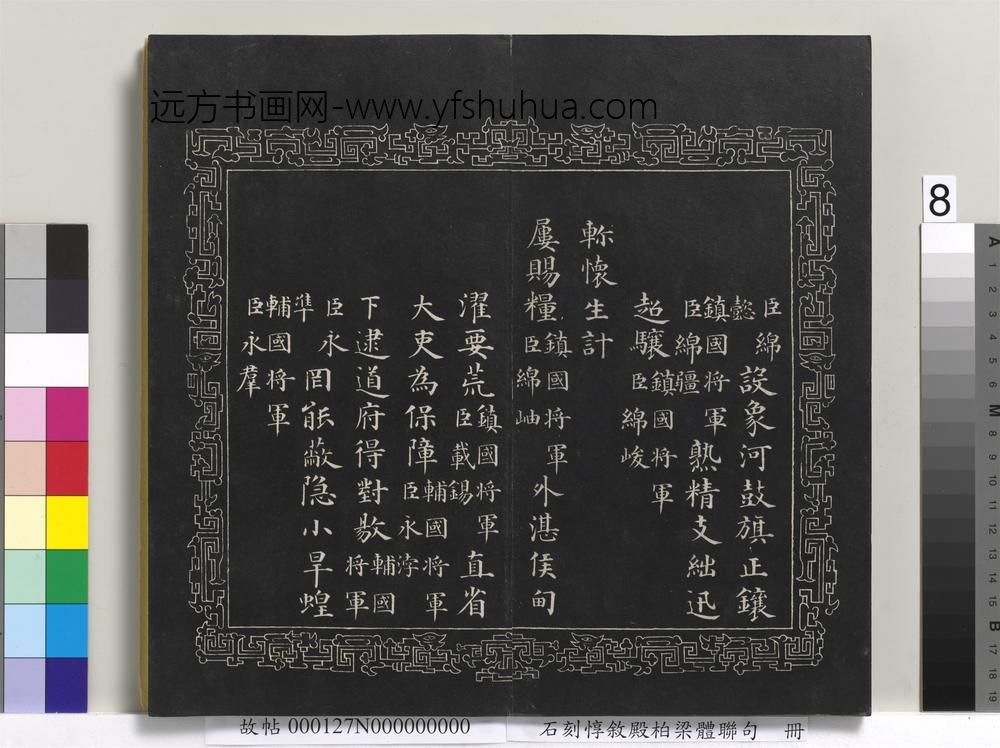 远方书画网-www.yfshuhua.com
臣綿懿設象河鼓旗正鑲
鎮國将軍臣綿疆熟精支絀迅
超驤鎮國将軍臣綿峻
軫懷生計
屢賜糧鎮國将軍臣綿岫外湛侯甸
濯要荒鎮國将軍臣載錫直省
大吏為保障輔國将軍臣永渟
下逮道府得對敭輔國将軍
臣永準罔能蔽隐小旱蝗
輔國将軍臣永羣
故帖 000127N000000000
石刻惇敘殿柏梁體聯句 冊
8
A 1 2 3 4 5 6 M 8 9 10 11 12 13 14 15 B 17 18 19